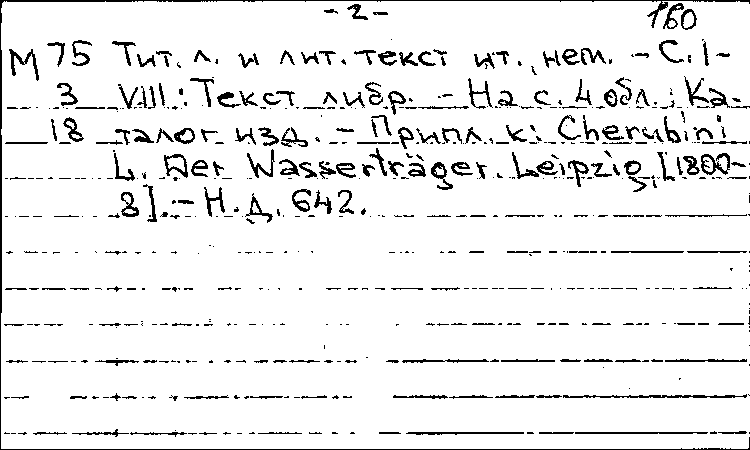 - 2 -
160
М 75 Тит. л. и лит. текст ит., нем. - С. I-
3 VIII: Текст либр. - На с. 4 обл.: Ка-
18 талог изд. - Припл. к: Cherubini
L. Der Wasserträger. Leipzig, [1800-
8]. - Н.д. 642.